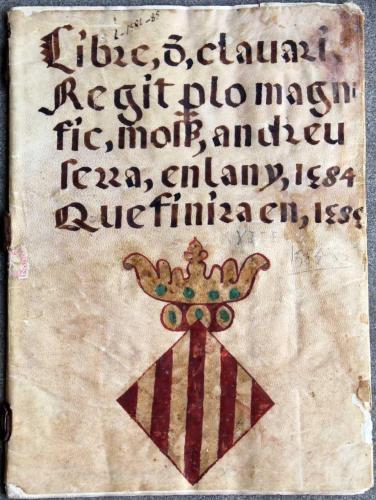 L-1584-85
Libre, õ, clauari,
Regit plo magni
fic, moss, andreu
serra, en lany, 1584
Que finira en, 1585